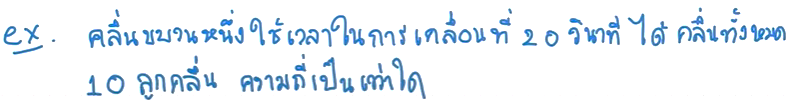 ex. คลื่นขบวนหนึ่งใช้เวลาในการเคลื่อนที่ 20 วินาที ได้คลื่นทั้งหมด
10 ลูกคลื่น ความถี่เป็นเท่าใด